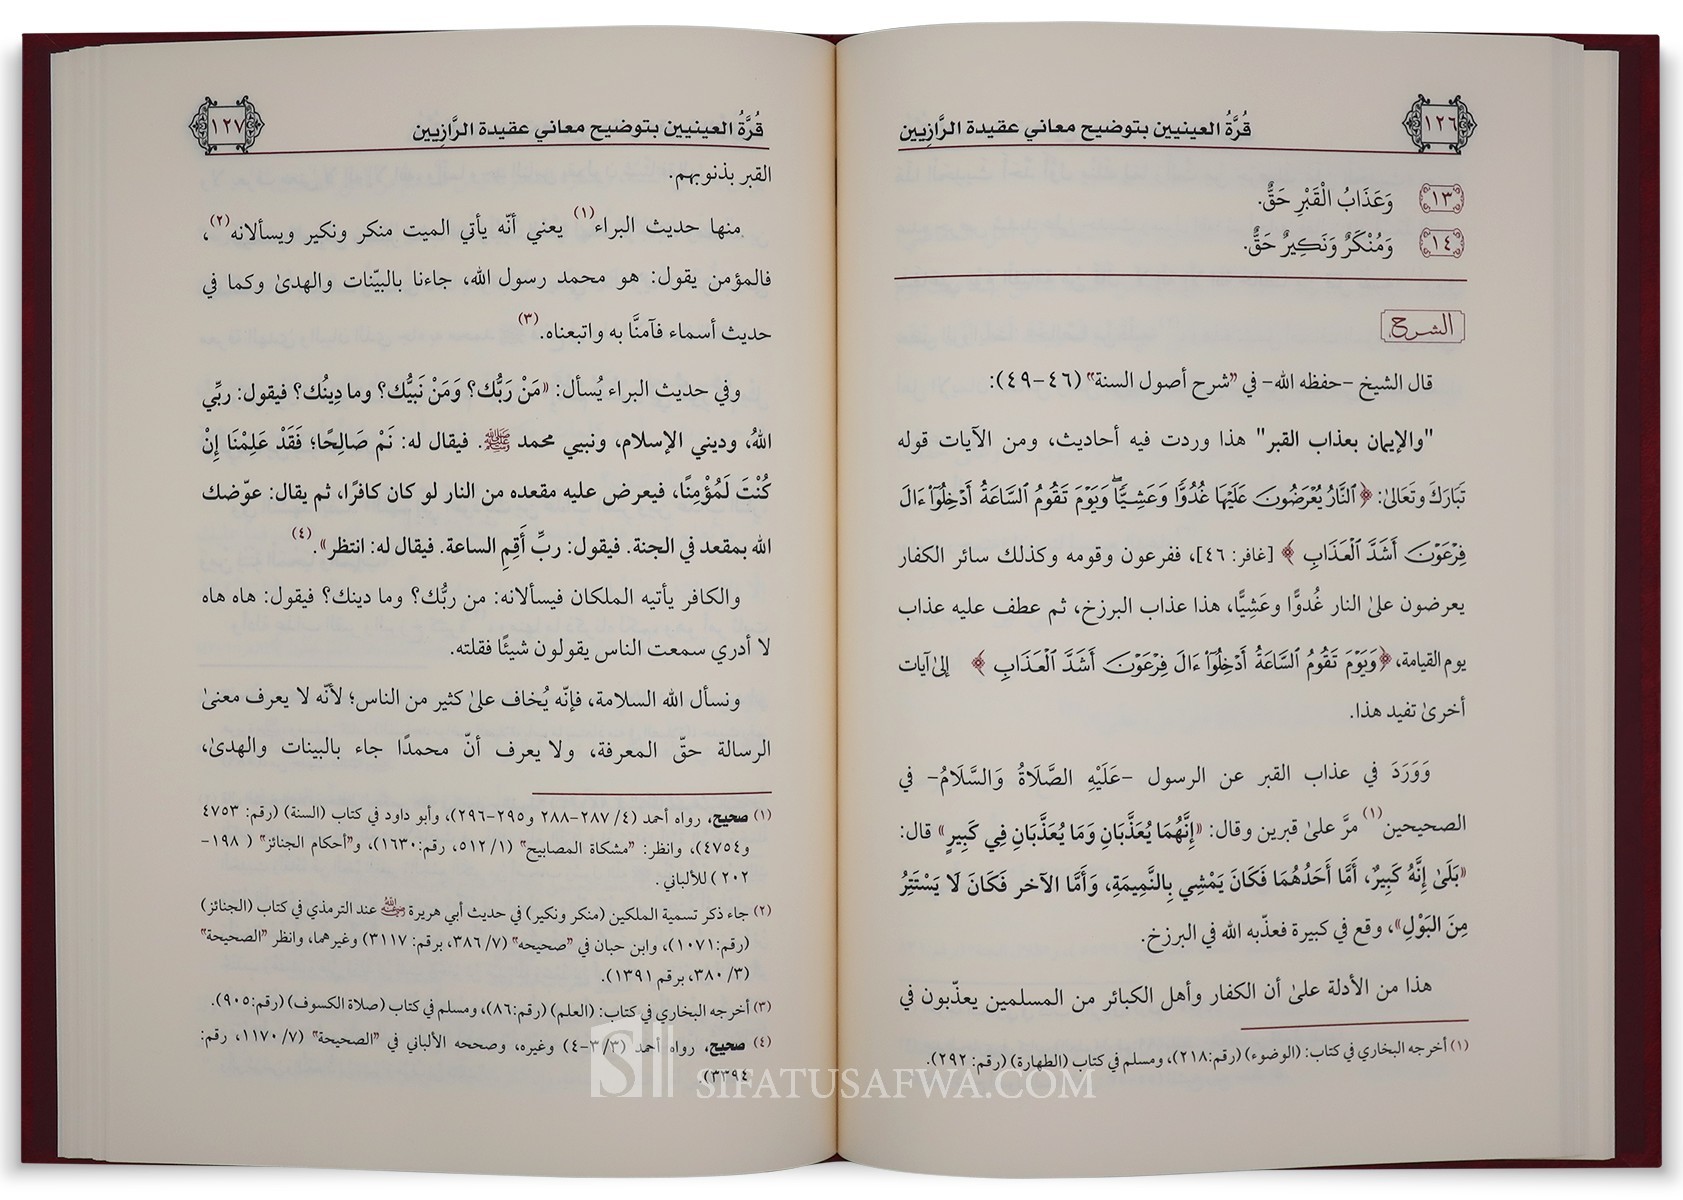 قُرَّةُ العينيين بتوضيح معاني عقيدة الرَّازِيين
١٢٦
١٣ وَعَذَابُ الْقَبْرِ حَقٌّ.
١٤ وَمُنْكَرٌ وَنَكِيرٌ حَقٌّ.
الشرح
قال الشيخ -حفظه الله- في "شرح أصول السنة" (٤٦-٤٩):
"والإيمان بعذاب القبر" هذا وردت فيه أحاديث، ومن الآيات قوله
تَبَارَكَ وَتَعَالَىٰ: ﴿ٱلنَّارُ يُعۡرَضُونَ عَلَيۡهَا غُدُوّٗا وَعَشِيّٗاۖ وَيَوۡمَ تَقُومُ ٱلسَّاعَةُ أَدۡخِلُوٓاْ ءَالَ
فِرۡعَوۡنَ أَشَدَّ ٱلۡعَذَابِ﴾ [غافر: ٤٦]، ففرعون وقومه وكذلك سائر الكفار
يعرضون علىٰ النار غُدوًّا وعَشِيًّا، هذا عذاب البرزخ، ثم عطف عليه عذاب
يوم القيامة، ﴿وَيَوۡمَ تَقُومُ ٱلسَّاعَةُ أَدۡخِلُوٓاْ ءَالَ فِرۡعَوۡنَ أَشَدَّ ٱلۡعَذَابِ﴾ إلىٰ آيات
أخرىٰ تفيد هذا.
وَوَرَدَ في عذاب القبر عن الرسول -عَلَيْهِ الصَّلَاةُ وَالسَّلَامُ- في
الصحيحين(١) مرَّ علىٰ قبرين وقال: «إِنَّهُمَا يُعَذَّبَانِ وَمَا يُعَذَّبَانِ فِي كَبِيرٍ» قال:
«بَلَىٰ إِنَّهُ كَبِيرٌ، أَمَّا أَحَدُهُمَا فَكَانَ يَمْشِي بِالنَّمِيمَةِ، وَأَمَّا الآخر فَكَانَ لَا يَسْتَتِرُ
مِنَ البَوْلِ»، وقع في كبيرة فعذّبه الله في البرزخ.
هذا من الأدلة علىٰ أن الكفار وأهل الكبائر من المسلمين يعذّبون في
(١) أخرجه البخاري في كتاب: (الوضوء) (رقم:٢١٨)، ومسلم في كتاب (الطهارة) (رقم: ٢٩٢).
قُرَّةُ العينيين بتوضيح معاني عقيدة الرَّازِيين
١٢٧
القبر بذنوبهم.
منها حديث البراء(١) يعني أنّه يأتي الميت منكر ونكير ويسألانه(٢)،
فالمؤمن يقول: هو محمد رسول الله، جاءنا بالبيّنات والهدىٰ وكما في
حديث أسماء فآمنَّا به واتبعناه.(٣)
وفي حديث البراء يُسأل: «مَنْ رَبُّك؟ وَمَنْ نَبيُّك؟ وما دِينُك؟ فيقول: ربِّي
اللهُ، وديني الإسلام، ونبيي محمد ﷺ. فيقال له: نَمْ صَالِحًا؛ فَقَدْ عَلِمْنَا إِنْ
كُنْتَ لَمُؤْمِنًا، فيعرض عليه مقعده من النار لو كان كافرًا، ثم يقال: عوّضك
الله بمقعد في الجنة. فيقول: ربِّ أَقِمِ الساعة. فيقال له: انتظر».(٤)
والكافر يأتيه الملكان فيسألانه: من ربُّك؟ وما دينك؟ فيقول: هاه هاه
لا أدري سمعت الناس يقولون شيئًا فقلته.
ونسأل الله السلامة، فإنّه يُخاف علىٰ كثير من الناس؛ لأنّه لا يعرف معنىٰ
الرسالة حقّ المعرفة، ولا يعرف أنّ محمدًا جاء بالبينات والهدىٰ،
(١) صحيح، رواه أحمد (٤/ ٢٨٧-٢٨٨ و٢٩٥-٢٩٦)، وأبو داود في كتاب (السنة) (رقم: ٤٧٥٣
و٤٧٥٤)، وانظر: "مشكاة المصابيح" (١/ ٥١٢، رقم:١٦٣٠)، و"أحكام الجنائز" ( ١٩٨-
٢٠٢ ) للألباني .
(٢) جاء ذكر تسمية الملكين (منكر ونكير) في حديث أبي هريرة رضي الله عنه عند الترمذي في كتاب (الجنائز)
(رقم:١٠٧١)، وابن حبان في "صحيحه" (٧/ ٣٨٦، برقم: ٣١١٧) وغيرهما، وانظر "الصحيحة"
(٣/ ٣٨٠، برقم ١٣٩١).
(٣) أخرجه البخاري في كتاب: (العلم) (رقم:٨٦)، ومسلم في كتاب (صلاة الكسوف) (رقم:٩٠٥).
(٤) صحيح، رواه أحمد (٣/ ٣-٤) وغيره، وصححه الألباني في "الصحيحة" (٧/ ١١٧٠، رقم:
٣٣٩٤).
SIFATUSAFWA.COM